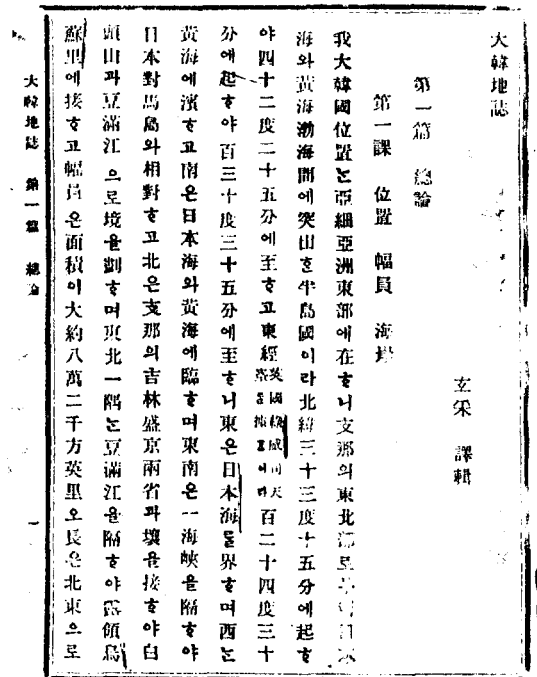 大韓地誌
玄采 譯輯
第一篇 總論
第一課 位置 幅員 海岸
我大韓國位置는亞細亞洲東部에在ᄒᆞ니支那의東北部로브터日本
海와黃海渤海間에突出ᄒᆞᆫ半島國이라北緯三十三度十五分에起ᄒᆞ
야四十二度二十五分에至ᄒᆞ고東經 百二十四度三十
分에起ᄒᆞ야百三十度三十五分에至ᄒᆞ니東은日本海를界ᄒᆞ며西는
黃海에濱ᄒᆞ고南은日本海와黃海에臨ᄒᆞ며東南은一海峽을隔ᄒᆞ야
日本對馬島와相對ᄒᆞ고北은支那의吉林盛京兩省과壤을接ᄒᆞ야白
頭山과豆滿江으로境을劃ᄒᆞ며東北一隅는豆滿江을隔ᄒᆞ야露領烏
蘇里에接ᄒᆞ고幅員은面積이大約八萬二千方英里오長은北東으로
大韓地誌 第一篇 總論 一